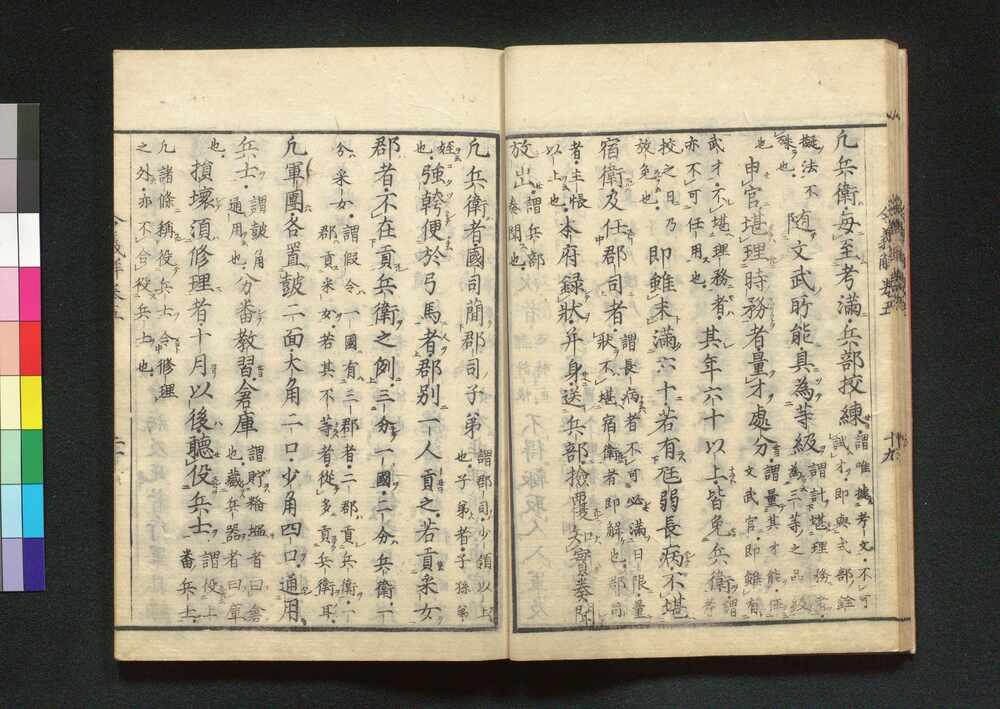 令義解 巻五 十九
凢兵衛毎至考滿兵部挍練
謂唯據考文不可
試才即與式部銓
擬法不
殊也
随文武所能具為等級
謂計堪理務
為三等之品級
也
申官堪理時務者量才處分
謂量其才能任
文武官即雖有
武才不堪理務者
亦不可任用也
其年六十以上皆免兵衛
謂
考
挍之日乃
放免也
即雖未滿六十若有尫弱長病不堪
宿衛及任郡司者
謂長病者不可必滿日限量
狀不堪宿衛者即解也郡司
者主帳
以上也
本府録狀并身送兵部撿覆知實奏聞
放出
謂兵部
奏聞也
凢兵衛者國司簡郡司子弟
謂郡司少領以上
也子弟者子孫弟
姪
也
強幹便於弓馬者郡別一人貢之若貢采女
郡者不在貢兵衛之例三分一國二分兵衛一
分采女
謂假令一國有三郡者二郡貢兵衛一
郡貢采女若其不等者從多貢兵衛耳
凢軍團各置皷一面大角二口少角四口通用
兵士
謂皷角
通用也
分番教習倉庫
謂貯糧塩者曰倉
也藏兵器者曰庫
也
損壊須修理者十月以後聽役兵士
謂役上
番兵士
凢諸條稱役兵士令修理
之外亦不合役兵士也